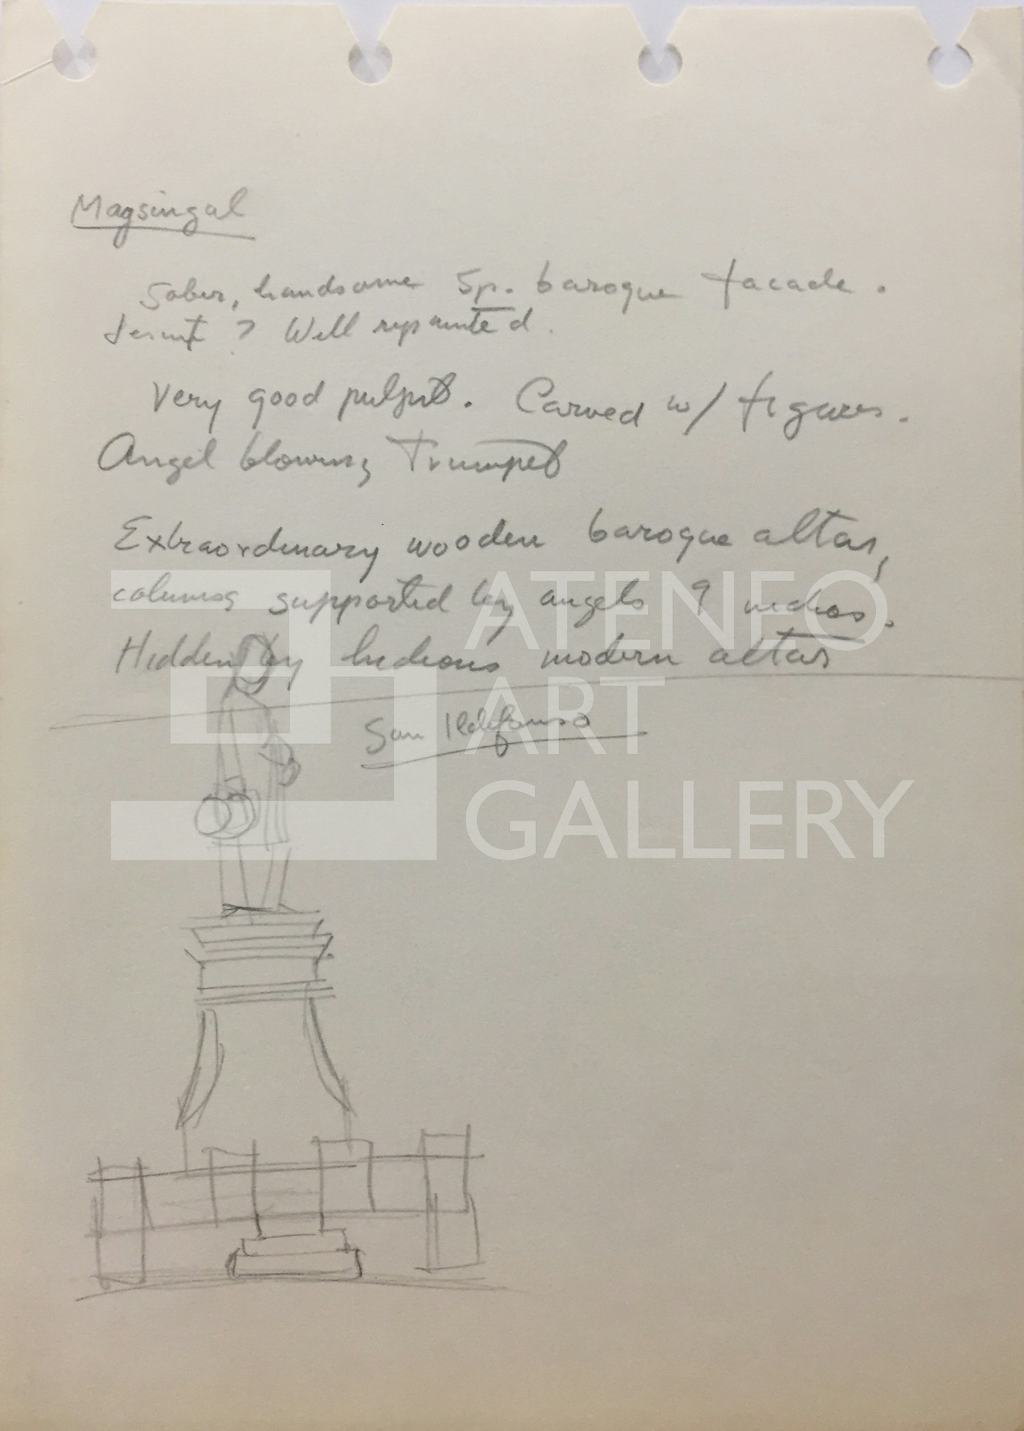 Magsingal
Sober, handsome Sp. baroque facade.
? Well repainted.
Very good pulpit. Carved w/ figures.
Angel blowing Trumpet
Extraordinary wooden baroque altar,
columns supported by angels 9 niches.
Hidden by hideous modern altar
San Ildefonso
ATENEO
ART
GALLERY